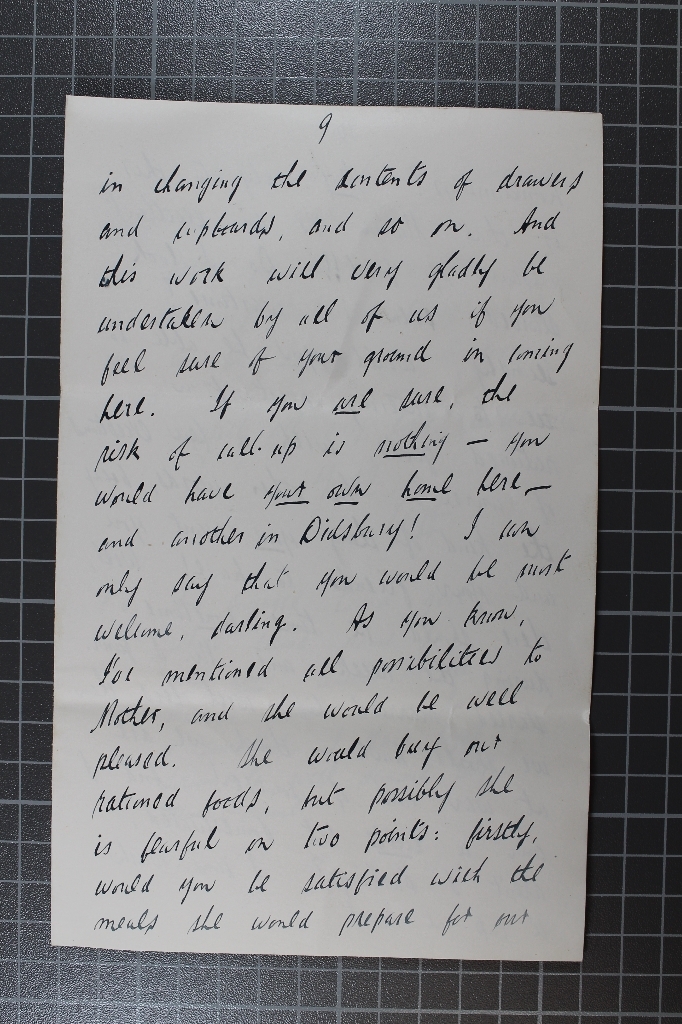 9
in changing the contents of drawers
and cupboards, and so on. And
this work will very gladly be
undertaken by all of us if you
feel sure of your ground in coming
here. If you are sure, the
risk of call-up is nothing — you
would have your own home here —
and another in Didsbury! I can
only say that you would be most
welcome, darling. As you know,
I've mentioned all possibilities to
Mother, and she would be well
pleased. She would buy our
rationed foods, but possibly she
is fearful on two points: firstly,
would you be satisfied with the
meals she would prepare for our